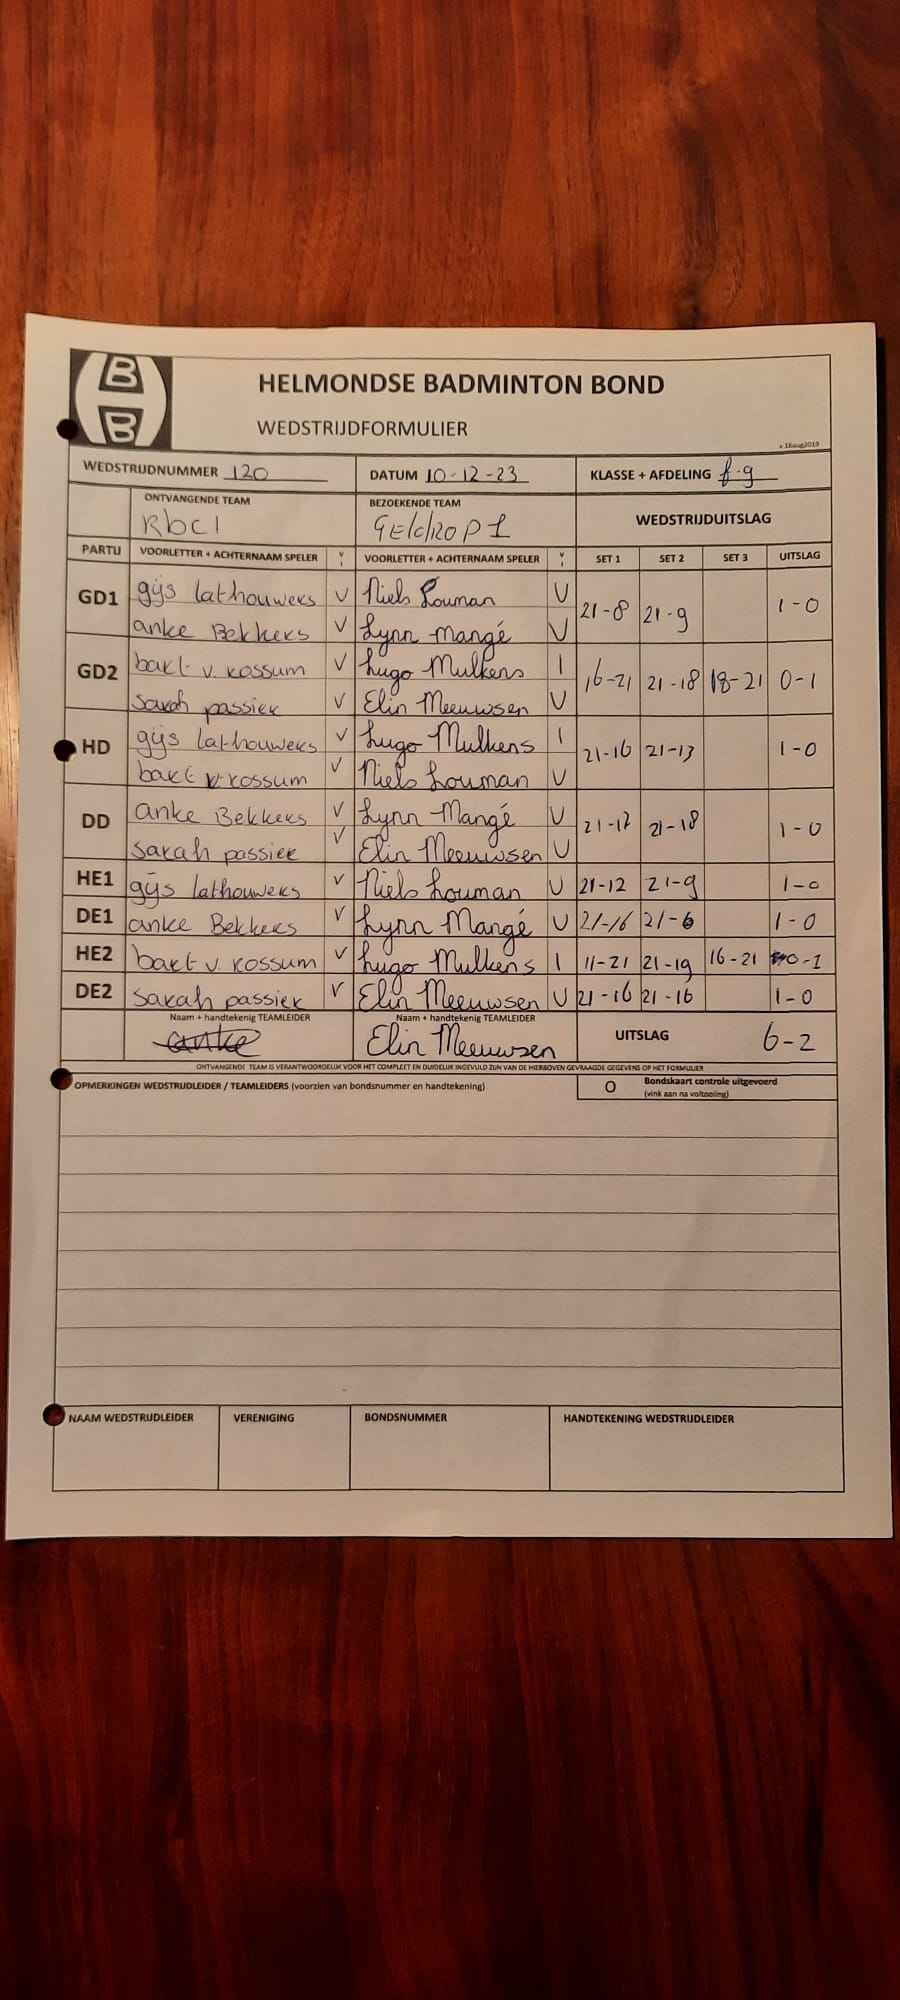 B
B
HELMONDSE BADMINTON BOND
WEDSTRIJDFORMULIER
v.18aug2019
WEDSTRIJDNUMMER 120 DATUM 10-12-23 KLASSE + AFDELING f-g
ONTVANGENDE TEAM BEZOEKENDE TEAM WEDSTRIJDUITSLAG
Rbc1 GEldROP 1
PARTIJ VOORLETTER + ACHTERNAAM SPELER V VOORLETTER + ACHTERNAAM SPELER V SET 1 SET 2 SET 3 UITSLAG
GD1 gijs lathouwers V Niels Louman V 21-8 21-9 1-0
anke Bekkers V Lynn Mangé V
GD2 bart v. rossum V Lugo Mulkens I 16-21 21-18 18-21 0-1
sarah passier V Elin Meeuwsen V
HD gijs lathouwers V Lugo Mulkens I 21-16 21-13 1-0
bart v. rossum V Niels Louman V
DD anke Bekkers V Lynn Mangé V 21-12 21-18 1-0
sarah passier V Elin Meeuwsen V
HE1 gijs lathouwers V Niels Louman V 21-12 21-9 1-0
DE1 anke Bekkers V Lynn Mangé V 21-16 21-6 1-0
HE2 bart v. rossum V Lugo Mulkens I 11-21 21-19 16-21 0-1
DE2 sarah passier V Elin Meeuwsen V 21-16 21-16 1-0
Naam + handtekenig TEAMLEIDER Naam + handtekenig TEAMLEIDER UITSLAG 6-2
anke Elin Meeuwsen
ONTVANGENDE TEAM IS VERANTWOORDELIJK VOOR HET COMPLEET EN DUIDELIJK INGEVULD ZIJN VAN DE HIERBOVEN GEVRAAGDE GEGEVENS OP HET FORMULIER
OPMERKINGEN WEDSTRIJDLEIDER / TEAMLEIDERS (voorzien van bondsnummer en handtekening) O Bondskaart controle uitgevoerd
(vink aan na voltooiing)
NAAM WEDSTRIJDLEIDER VERENIGING BONDSNUMMER HANDTEKENING WEDSTRIJDLEIDER